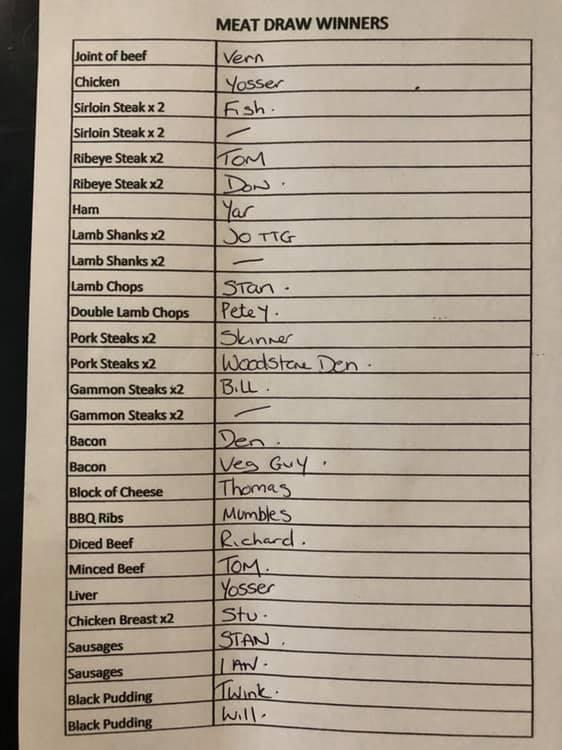 MEAT DRAW WINNERS
Joint of beef Vern
Chicken Yosser
Sirloin Steak x 2 Fish.
Sirloin Steak x 2 —
Ribeye Steak x2 TOM
Ribeye Steak x2 DON.
Ham Yar
Lamb Shanks x2 JO TTG
Lamb Shanks x2 —
Lamb Chops Stan.
Double Lamb Chops Petey.
Pork Steaks x2 Skinner
Pork Steaks x2 Woodstone Den.
Gammon Steaks x2 BILL.
Gammon Steaks x2 —
Bacon Den.
Bacon Veg Guy.
Block of Cheese Thomas
BBQ Ribs Mumbles
Diced Beef Richard.
Minced Beef TOM.
Liver Yosser
Chicken Breast x2 Stu.
Sausages STAN.
Sausages IAN.
Black Pudding Twink.
Black Pudding Will.